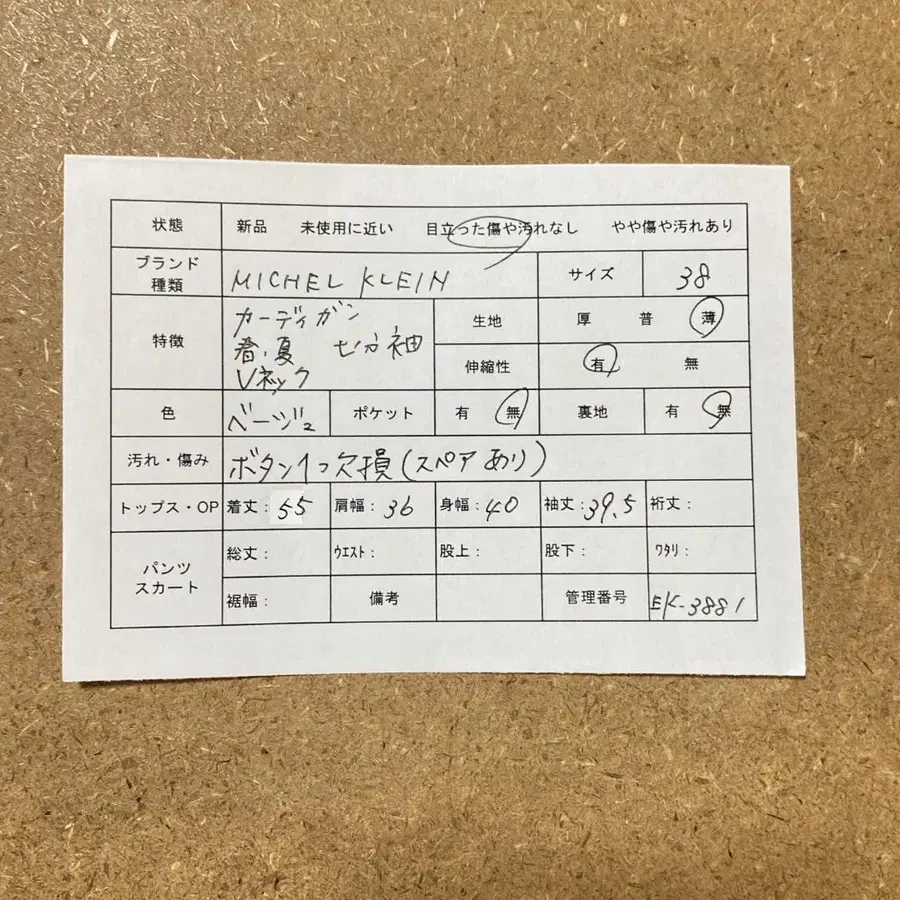 状態 新品 未使用に近い 目立った傷や汚れなし やや傷や汚れあり
ブランド 種類 MICHEL KLEIN サイズ 38
特徴 カーディガン
春・夏 七分袖
Vネック
生地 厚 普 薄
伸縮性 有 無
色 ベージュ ポケット 有 無 裏地 有 無
汚れ・傷み ボタン1つ欠損(スペアあり)
トップス・OP 着丈:55 肩幅:36 身幅:40 袖丈:39.5 裄丈:
パンツ スカート 総丈: ウエスト: 股上: 股下: ワタリ:
裾幅: 備考 管理番号 EK-3881